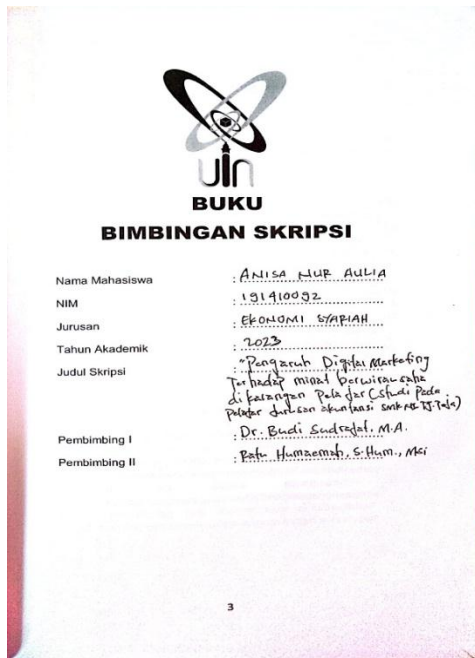 uin
BUKU
BIMBINGAN SKRIPSI
Nama Mahasiswa : ANISA NUR AULIA
NIM : 191410092
Jurusan : EKONOMI SYARIAH
Tahun Akademik : 2023
Judul Skripsi : "Pengaruh Digital Marketing
Terhadap minat berwirausaha
di kalangan Pelajar (Studi Pada
Pelajar Jurusan akuntansi SMK
Pembimbing I : Dr. Budi Sudrajat, M.A.
Pembimbing II : Ratu Humaemah, S.Hum., MSi
3